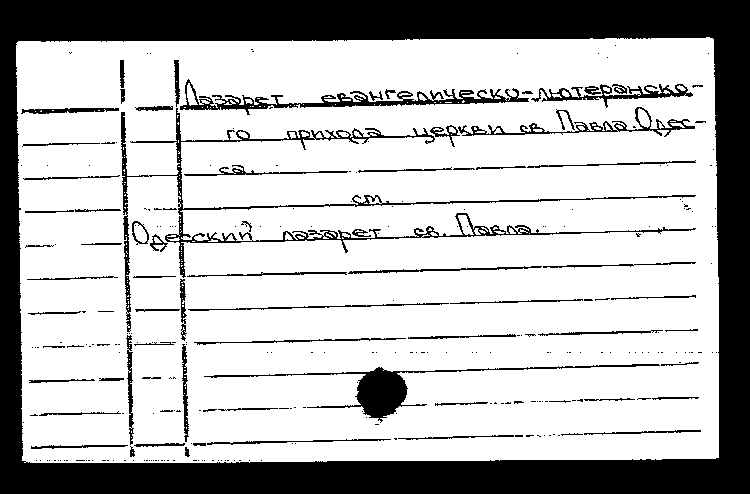 Лазарет евангелическо-лютеранско-
го прихода церкви св. Павла. Одес-
са.
см.
Одесский лазарет св. Павла.